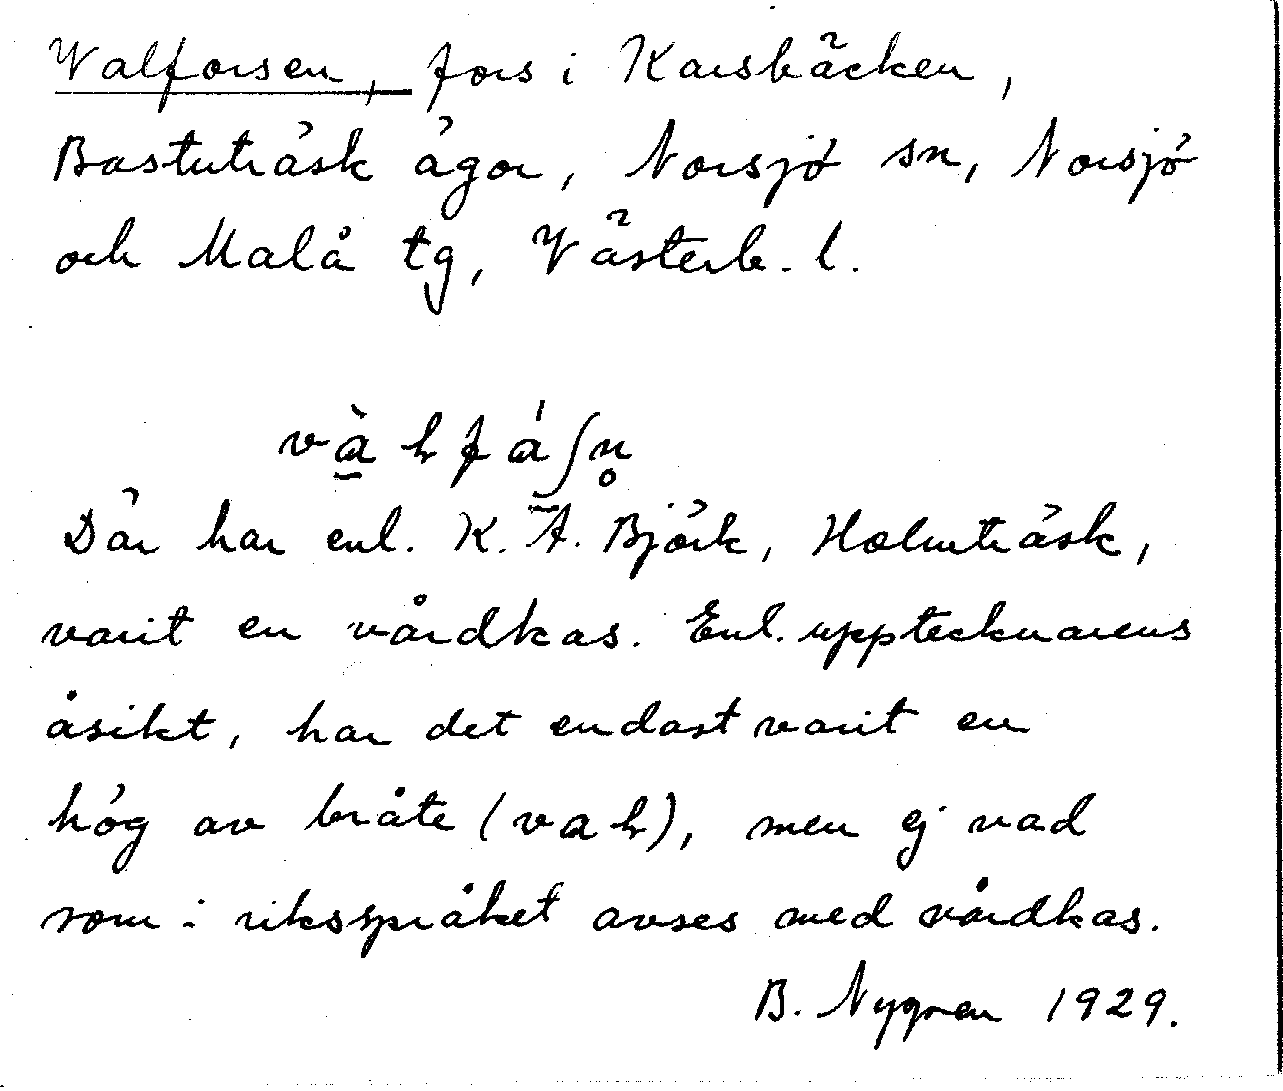 Valforsen, fors i Karsbäcken,
Bastuträsk ägor, Norsjö sn, Norsjö
och Malå tg, Västerb. l.
Där har enl. K. A. Björk, Holmträsk,
varit en vårdkas. Enl. upptecknarens
åsikt, har det endast varit en
hög av bråte (
), men ej vad
som i riksspråket avses med vårdkas.
B. Nygren 1929.